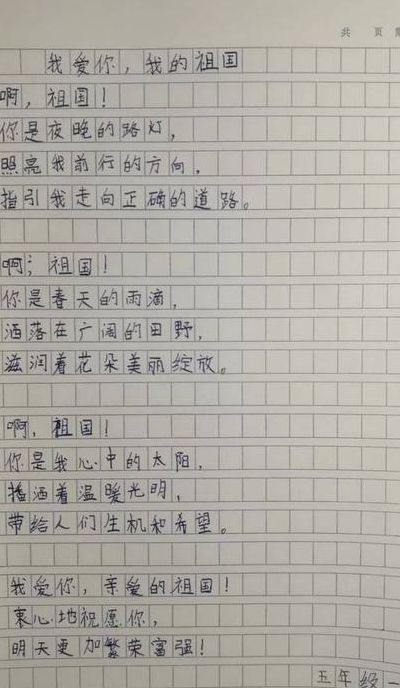 共 页
我爱你，我的祖国
啊，祖国！
你是夜晚的路灯，
照亮我前行的方向，
指引我走向正确的道路。
啊；祖国！
你是春天的雨滴，
洒落在广阔的田野，
滋润着花朵美丽绽放。
啊，祖国！
你是我心中的太阳，
播洒着温暖光明，
带给人们生机和希望。
我爱你，亲爱的祖国！
衷心地祝愿你，
明天更加繁荣富强！
五年级一